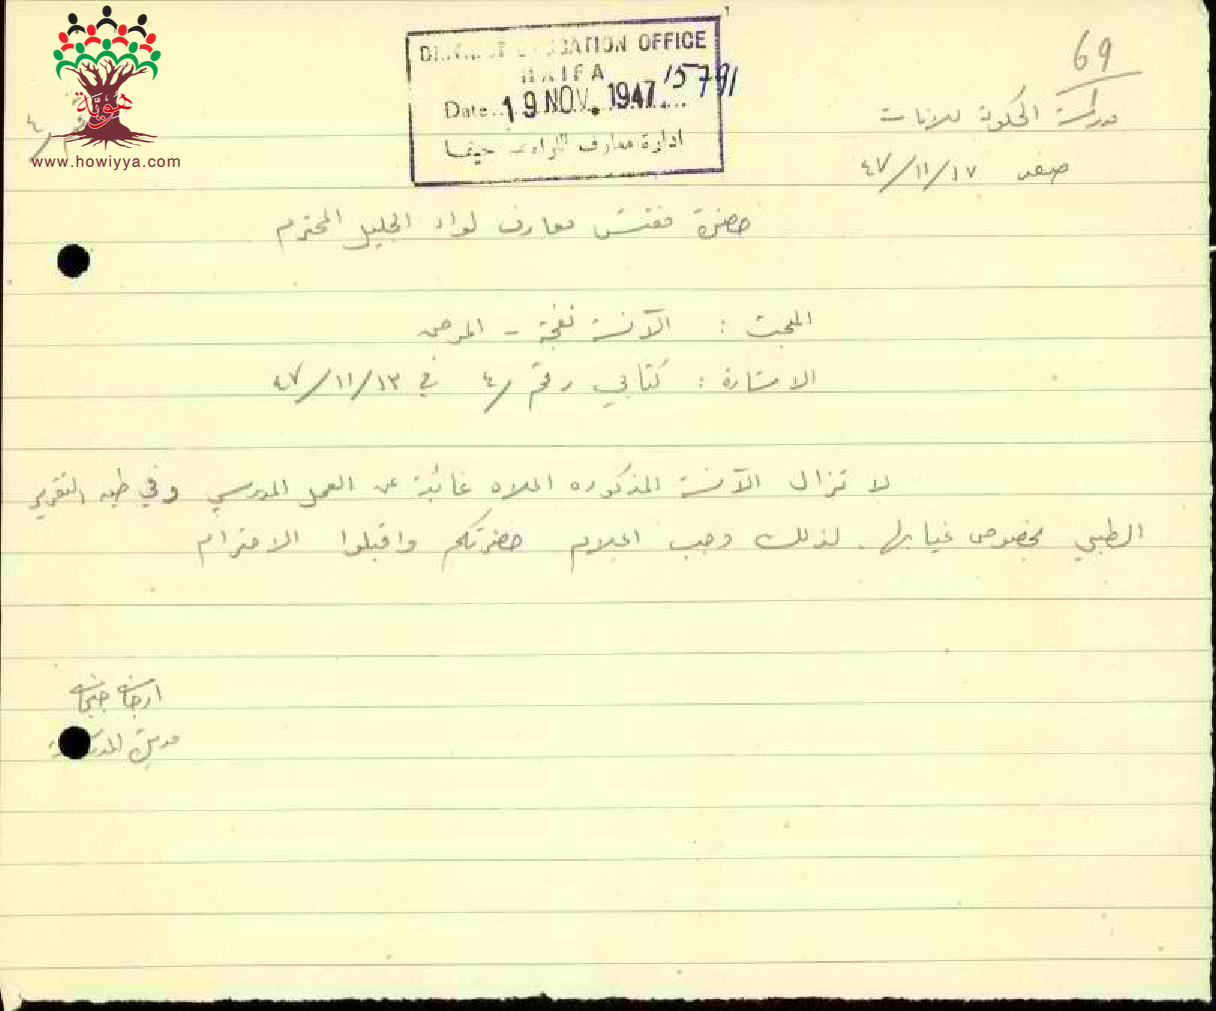 69
DISTRICT EDUCATION OFFICE
HAIFA
15791
Date..19 NOV. 1947...
ادارة معارف اللواء حيفا
هوية
www.howiyya.com
مدرسة الحكومة للبنات
صفد ١٧/١١/٤٧
حضرة مفتش معارف لواء الجليل المحترم
المبحث : الآنسة - المرض
الاشارة : كتابي رقم ٤/ في ١٣/١١/٤٧
لا تزال الآنسة المذكورة اعلاه غائبة عن العمل المدرسي وفي طيه التقرير
الطبي بخصوص غيابها. لذلك وجب اعلام حضرتكم واقبلوا الاحترام
مديرة المدرسة